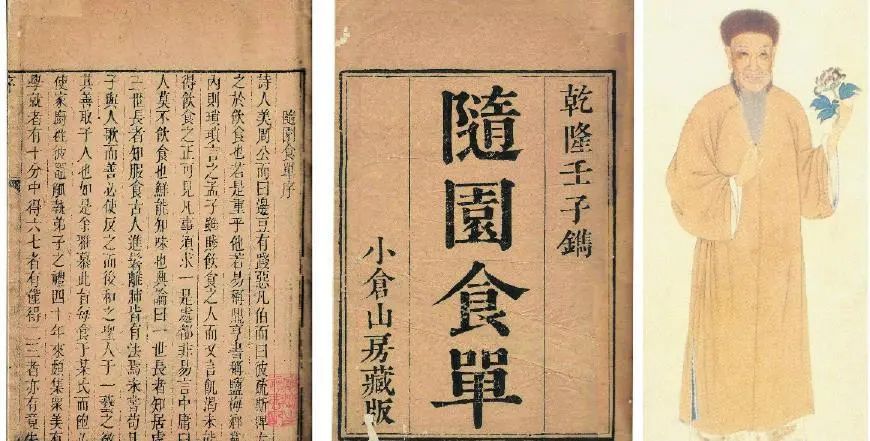 隨園食單序
詩人美周公而曰籩豆有踐惡凡伯而曰彼疏斯稗
之於飲食也若是重乎他若易稱鼎亨書稱鹽梅鄉
內則瑣瑣言之孟子雖賤飲食之人而又言飢渴未
得飲食之正可見凡事須求一是處都非易言中庸曰
人莫不飲食也鮮能知味也典論曰一世長者知居處
三世長者知服食古人進鬐離肺皆有法焉未嘗苟
子與人歌而善必使反之而後和之聖人于一藝之微
其善取于人也如是余雅慕此旨每食于某氏而飽
使家廚往彼竈觚執弟子之禮四十年來頗集眾美有
學就者有十分中得六七者有僅得二三者亦有竟失
序
乾隆壬子鐫
隨園食單
小倉山房藏版